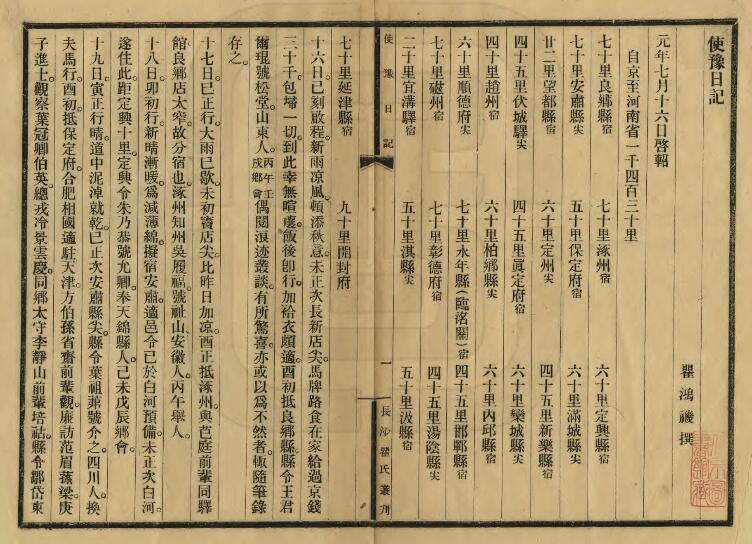 使豫日記
瞿鴻禨撰
元年七月十六日啓軺
自京至河南省一千四百三十里
七十里良鄉縣宿 七十里涿州宿 六十里定興縣宿
七十里安肅縣尖 五十里保定府宿 六十里滿城縣尖
廿二里望都縣宿 六十里定州尖 四十五里新樂縣宿
四十五里伏城驛尖 四十五里眞定府宿 六十里欒城縣尖
四十里趙州宿 六十里柏鄉縣尖 六十里內邱縣宿
六十里順德府尖 七十里永年縣(臨洺關)宿 四十五里邯鄲縣尖
七十里磁州宿 七十里彰德府宿 四十五里湯陰縣尖
二十里宜溝驛宿 五十里淇縣尖 五十里汲縣宿
使豫日記 一 長沙瞿氏叢刊
七十里延津縣宿 九十里開封府
十六日已刻啟程。新雨凉風。頓添秋意。未正次長新店尖。馬牌路食在家給過京錢
三十千。包埽一切。到此幸無喧嚷。飯後卽行。加袷衣頗適。酉初抵良鄉縣。縣令王君
爾琨號松堂。山東人。丙午壬戌鄉會偶閱浪迹叢談。有所驚喜。亦或以爲不然者。輙隨筆錄
存之。
十七日已正行。大雨已歇。未初竇店尖。比昨日加凉。酉正抵涿州。與芭庭前輩同驛
館。良鄉店太窄。故分宿也。涿州知州吳履福。號祉山。安徽人。丙午舉人。
十八日卯初行。新晴漸暖。爲減薄綿。擬宿安肅。適邑令已於白河預備。未正次白河。
遂住此。距定興十里。定興令朱乃恭號允卿。奉天錦縣人。己未戊辰鄉會。
十九日寅正行。晴。道中泥淖就乾。已正次安肅縣尖。縣令葉祖茀號介之。四川人。換
夫馬行。酉初抵保定府。合肥相國適駐天津。方伯孫省齋前輩觀。廉訪范眉蓀梁。庚
子進士。觀察葉冠卿伯英。總戎冷景雲慶。同鄉太守李靜山前輩培祜。縣令鄒岱東